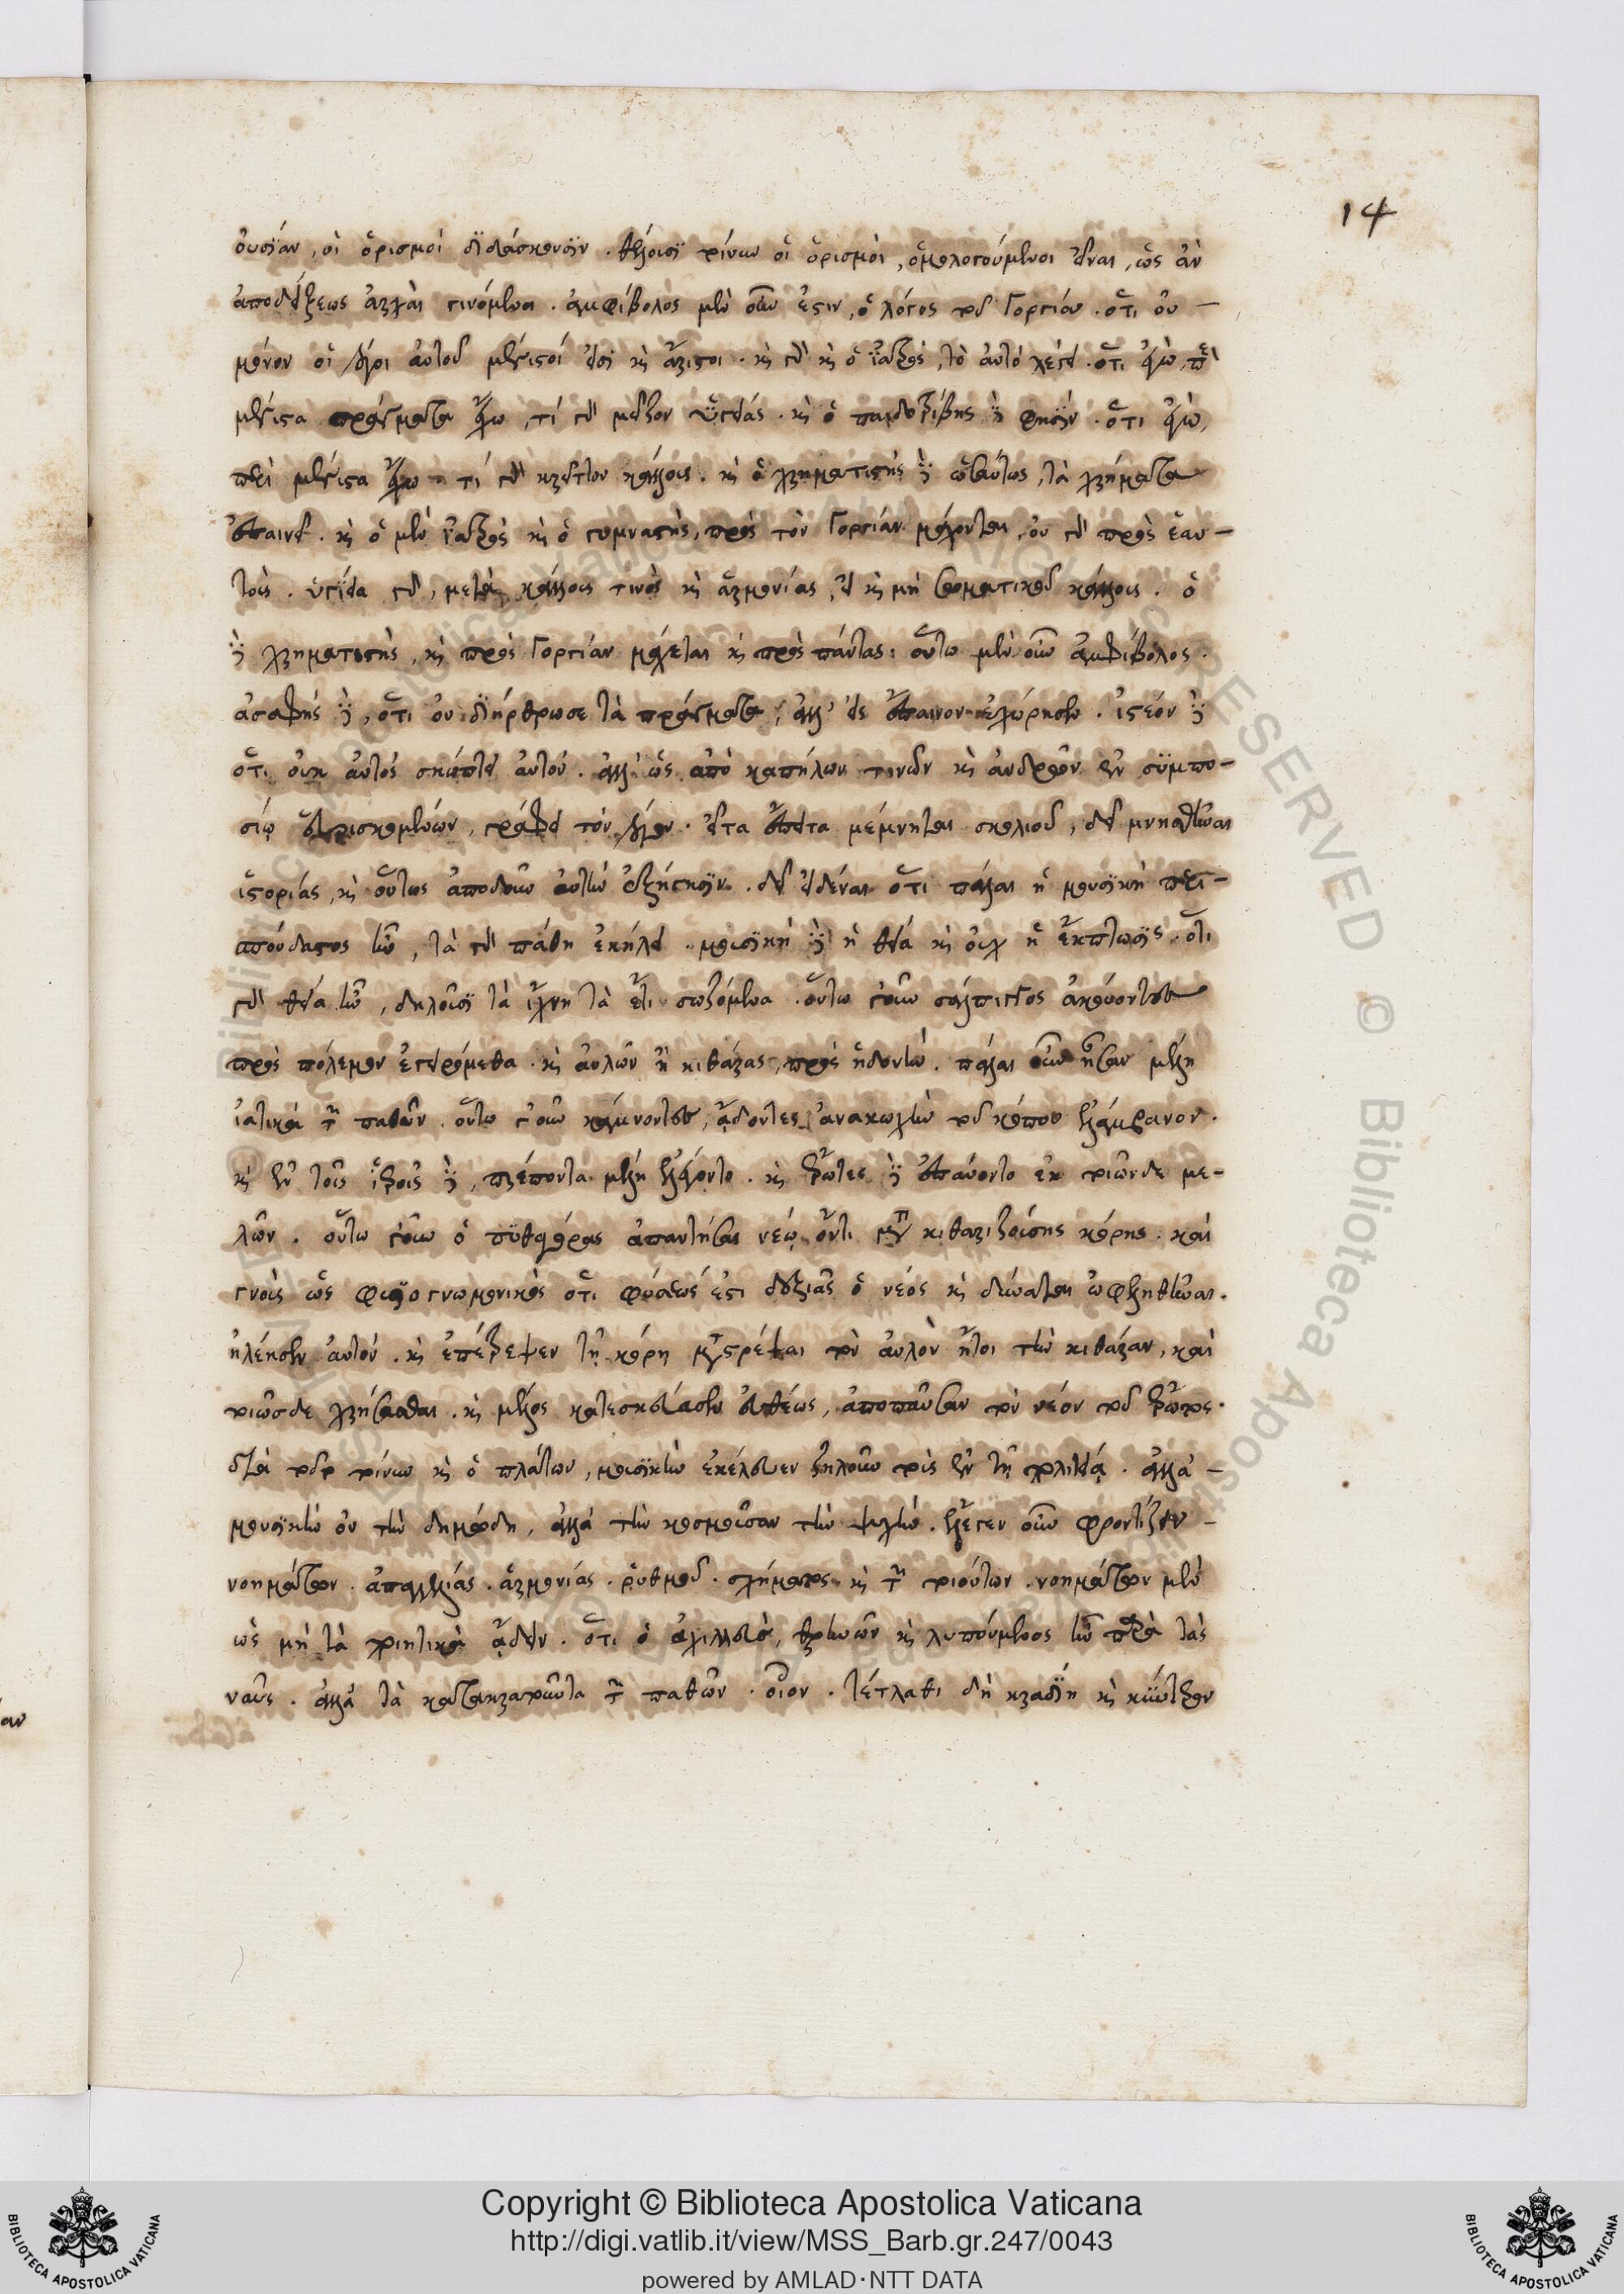 14
οὐσίαν, οἱ ὁρισμοὶ διδάσκουσιν. θέλουσι τοίνυν οἱ ὁρισμοὶ, ὁμολογούμενοι εἶναι, ὡς ἂν
ἀποδείξεως ἀρχαὶ γινόμεναι. ἀμφίβολος μὲν οὖν ἐστιν, ὁ λόγος τοῦ Γοργίου. ὅτι οὐ
μόνον οἱ λόγοι αὐτοῦ μέγιστοί εἰσι καὶ ἄριστοι. καὶ γὰρ καὶ ὁ ἰατρὸς, τὸ αὐτὸ λέγει. ὅτι ἐγὼ, περὶ
μέγιστα πράγματα ἔχω, τί γὰρ μεῖζον ὑγείας. καὶ ὁ παιδοτρίβης δὲ φησὶν. ὅτι ἐγὼ,
περὶ μέγιστα ἔχω. τί γὰρ κρεῖττον κάλλους. καὶ ὁ χρηματιστὴς δὲ ὡσαύτως, τὰ χρήματα
ἐπαινεῖ. καὶ ὁ μὲν ἰατρὸς καὶ ὁ γυμναστὴς, πρὸς τὸν Γοργίαν μάχονται, οὐ γὰρ πρὸς ἑαυ-
τοὺς. ὑγίεια γὰρ, μετὰ κάλλους τινὸς καὶ ἁρμονίας, εἰ καὶ μὴ σωματικοῦ κάλλους. ὁ
δὲ χρηματιστὴς, καὶ πρὸς Γοργίαν μάχεται καὶ πρὸς πάντας. οὕτω μὲν οὖν ἀμφίβολος.
ἀσαφὴς δὲ, ὅτι οὐ διήρθρωσε τὰ πράγματα, ἀλλ' εἰς ἔπαινον ἐχώρησεν. ἰστέον δὲ
ὅτι οὐκ αὐτὸς σκώπτει αὐτόν. ἀλλ' ὡς ἀπὸ καπήλων τινῶν καὶ ἀνδρῶν ἐν συμπο-
σίῳ εὑρισκομένων, γράφει τὸν λόγον. εἶτα ἐπειδὴ μέμνηται σκολιοῦ, δεῖ μνησθῆναι
ἱστορίας, καὶ οὕτως ἀποδοῦν αὐτὴν ἐξήγησιν. δεῖ εἰδέναι ὅτι πάλαι ἡ μουσικὴ περι-
σπούδαστος ἦν, τὰ γὰρ πάθη ἐκήλει. μουσικὴ δὲ ἡ θεία καὶ οὐχ ἡ ἔκπτωσις. ὅτι
γὰρ θεία ἦν, δηλοῦσι τὰ ἴχνη τὰ ἔτι σωζόμενα. οὕτω γοῦν σάλπιγγος ἀκούοντες
πρὸς πόλεμον ἐγειρόμεθα. καὶ αὐλῶν ἢ κιθάρας, πρὸς ἡδονήν. πάλαι οὖν ἦσαν μέλη
ἰατικὰ τῶν παθῶν. οὕτω γοῦν κάμνοντες, ᾄδοντες ἀνακωχὴν τοῦ κόπου ἐλάμβανον.
καὶ ἐν τοῖς ἱεροῖς δὲ, πρέποντα μέλη ἐλέγοντο. καὶ ἔρωτες δὲ ἐπαύοντο ἐκ τοιῶνδε με-
λῶν. οὕτω γοῦν ὁ πυθαγόρας ἀπαντήσας νέῳ ὄντι μετὰ κιθαριζούσης κόρης. καὶ
γνοὺς ὡς φυσιογνωμονικὸς ὅτι φύσεώς ἐστι δεξιᾶς ὁ νέος καὶ δύναται ὠφεληθῆναι.
ἠλέησεν αὐτόν. καὶ ἐπέτρεψεν τῇ κόρῃ μεταστρέψαι τὸν αὐλὸν ἤτοι τὴν κιθάραν, καὶ
τοιῶσδε χρήσασθαι. καὶ μέλος κατεσκεύασεν εὐθέως, ἀποπαῦσαν τὸν νέον τοῦ ἔρωτος.
διὰ τοῦτο τοίνυν καὶ ὁ πλάτων, μουσικὴν ἐκέλευεν ζηλοῦν τοὺς ἐν τῇ πολιτείᾳ. ἀλλὰ
μουσικὴν οὐ τὴν δημώδη, ἀλλὰ τὴν κοσμοῦσαν τὴν ψυχήν. ἔλεγεν οὖν φροντίζειν
νοημάτων. ἀπαγγελίας. ἁρμονίας. ῥυθμοῦ. σχήματος καὶ τῶν τοιούτων. νοημάτων μὲν
ὡς μὴ τὰ ποιητικὰ ᾄδειν. ὅτι ὁ ἀχιλλεὺς, θρηνῶν καὶ λυπούμενος ἦν παρὰ τὰς
ναῦς. ἀλλὰ τὰ κατακρατοῦντα τῶν παθῶν. οἷον. τέτλαθι δὴ κραδίη καὶ κύντερον
Copyright © Biblioteca Apostolica Vaticana
http://digi.vatlib.it/view/MSS_Barb.gr.247/0043
powered by AMLAD·NTT DATA